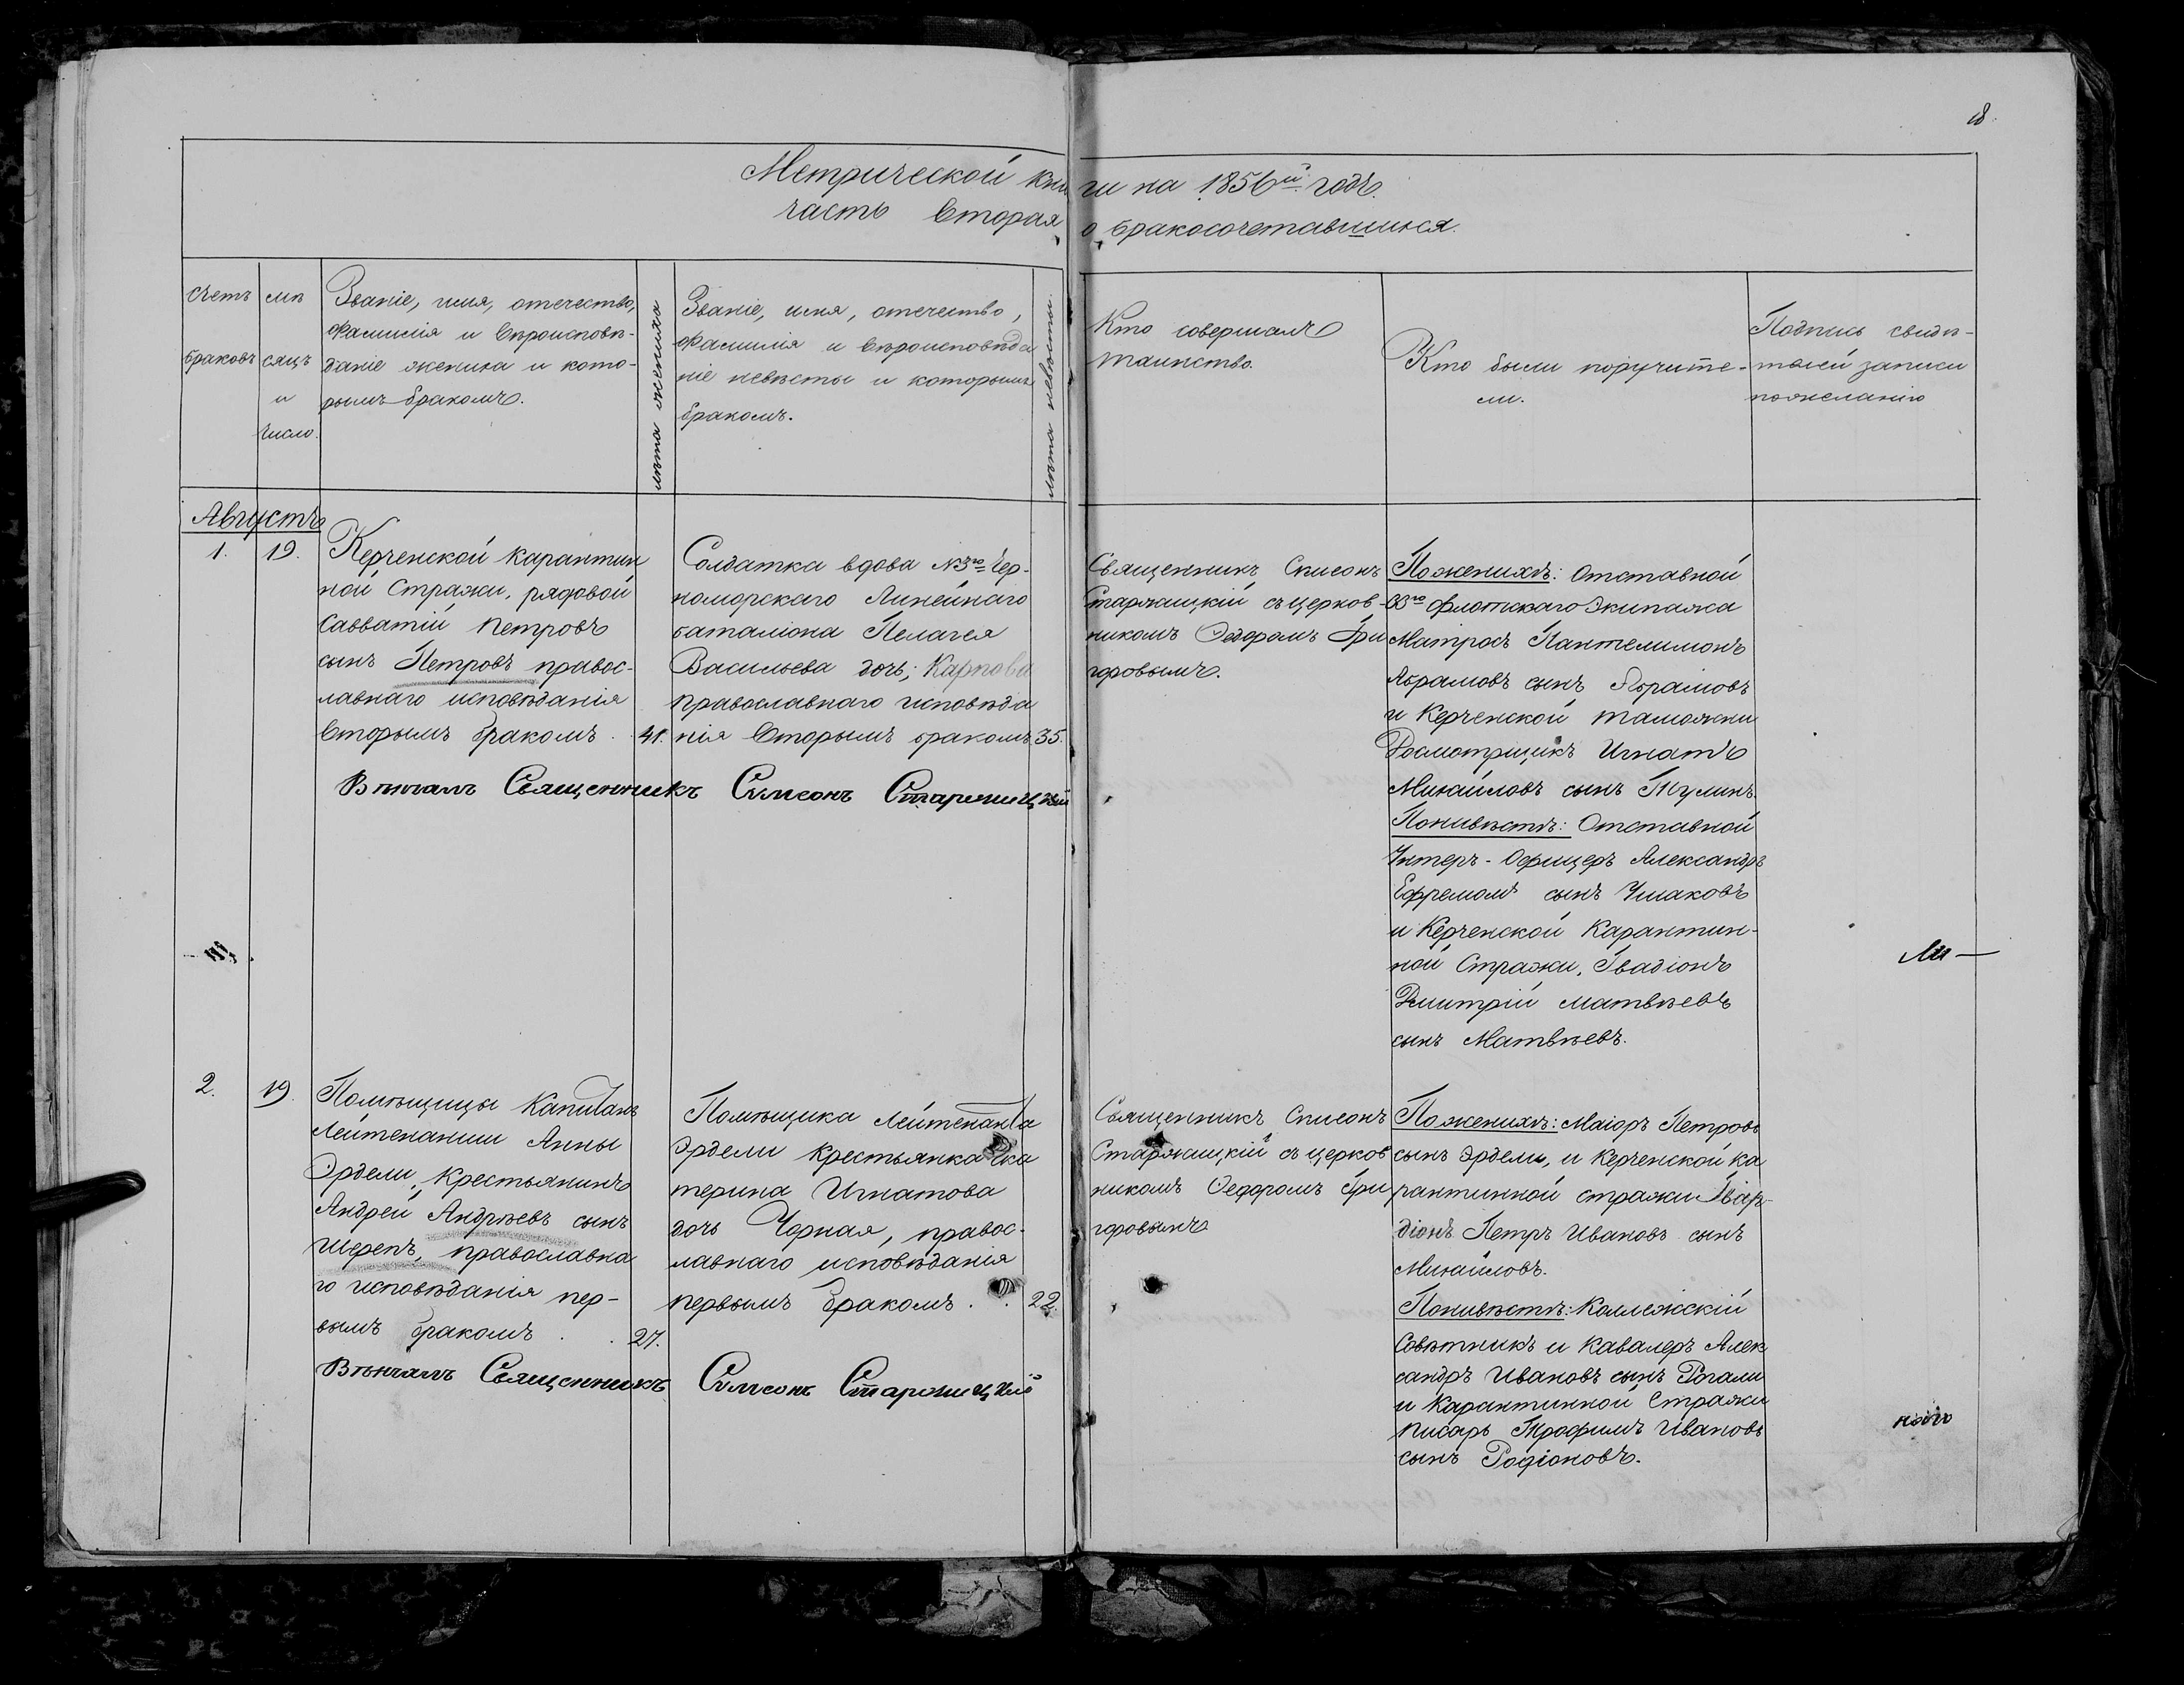 18.
Метрической книги на 1856й годъ.
часть вторая, о бракосочетавшихся.
Счетъ браковъ
мѣсяцъ и число.
Званіе, имя, отечество,
фамилія и вѣроисповѣ-
даніе жениха и кото-
рымъ бракомъ.
лѣта жениха
Званіе, имя, отечество,
фамилія и вѣроисповѣда
ніе невѣсты и которымъ
бракомъ.
лѣта невѣсты.
Кто совершалъ
таинство.
Кто были поручите-
ли.
Подпись свидѣ-
телей записи
пожеланію
Августъ
1.
19.
Керченской карантин
ной Стражи, рядовой
Савватій Петровъ
сынъ Петровъ правос-
лавнаго исповѣданія
вторымъ бракомъ.
41.
Солдатка вдова №3го Чер-
номорскаго Линейнаго
баталіона Пелагея
Васильева дочь; Карпова
православнаго исповѣда
нія вторымъ бракомъ
35.
Священникъ Симеонъ
Старжицкій съ церков-
никомъ Ѳедоромъ Гри
горовымъ.
По женихѣ: Отставной
флотскаго Экипажа
Матросъ Пантелимонъ
Абрамовъ сынъ Абрамовъ
и Керченской таможни
Досмотрщикъ Игнатъ
Михайловъ сынъ Тулинъ.
Понивѣстѣ: Отставной
Унтеръ-Офицеръ Александръ
Ефремовъ сынъ Ушаковъ
и Керченской Карантин-
ной Стражи, Гвадіонъ
Дмитрій Матвѣевъ
сынъ Матвѣевъ.
Вѣнчалъ Священникъ Симеонъ Старжицкій
2.
19.
Помѣщицы Капитанъ
Лейтенанши Анны
Эрдели, крестьянинъ
Андрей Андрѣевъ сынъ
Шерепъ, православна
го исповѣданія пер-
вымъ бракомъ . .
27.
Помѣщика Лейтенанта
Эрдели крестьянка Ека
терина Игнатова
дочь Чорная, правос-
лавнаго исповѣданія
первымъ бракомъ . .
22.
Священникъ Симеонъ
Старжицкій съ церков
никомъ Ѳедоромъ Гри
горовымъ
По женихѣ: Маіоръ Петровъ
сынъ Эрдели, и Керченской Ка
рантинной стражи Гвар-
діонъ Петръ Ивановъ сынъ
Михайловъ.
Понивѣстѣ: Коллежскій
Совѣтникъ и Кавалеръ Алек
сандръ Ивановъ сынъ Рогали
и Карантинной Стражи
писарь Трофимъ Ивановъ
сынъ Родіоновъ.
Вѣнчалъ Священникъ Симеонъ Старжицкій